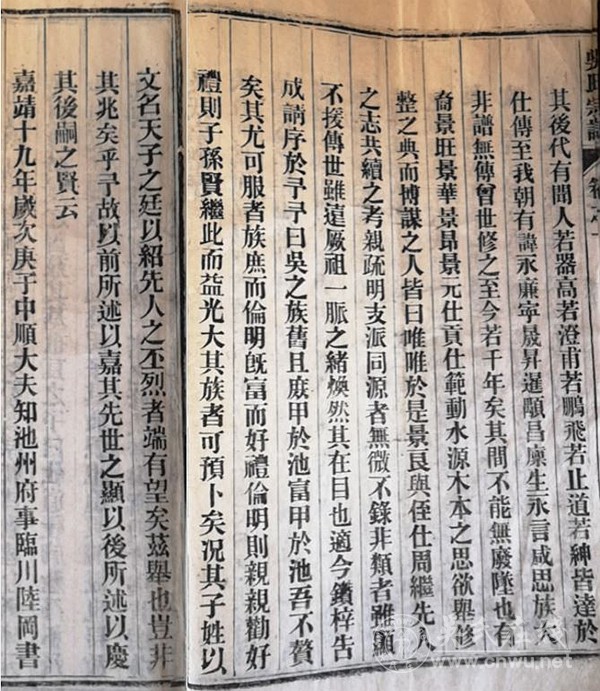 其後代有聞人若器高若澄甫若鵬飛若止道若紳皆達於
仕傳至我朝有諱永廉寧晟昇暹顒昌廪生永言咸思族大
非譜無傳曾世修之至今若千年矣其間不能無廢墜也有
裔景旺景華景昂景元仕貢仕範動水源木本之思欲舉修
整之典而博謀之人皆曰唯唯於是景良與侄仕周繼先人
之志共續之考親疏明支派同源者無微不錄非類者雖顯
不接傳世雖遠厥祖一脈之緒煥然其在目也適今鐫梓告
成請序於予予曰吳之族舊且庶甲於池富甲於池吾不贅
矣其尤可服者族庶而倫明旣富而好禮倫明則親親勸好
禮則子孫賢繼此而益光大其族者可預卜矣況其子姓以
文名天子之廷以紹先人之丕烈者端有望矣茲舉也豈非
其兆矣乎予故以前所述以嘉其先世之顯以後所述以慶
其後嗣之賢云
嘉靖十九年歲次庚子中順大夫知池州府事臨川陸岡書
www.cnwu.net